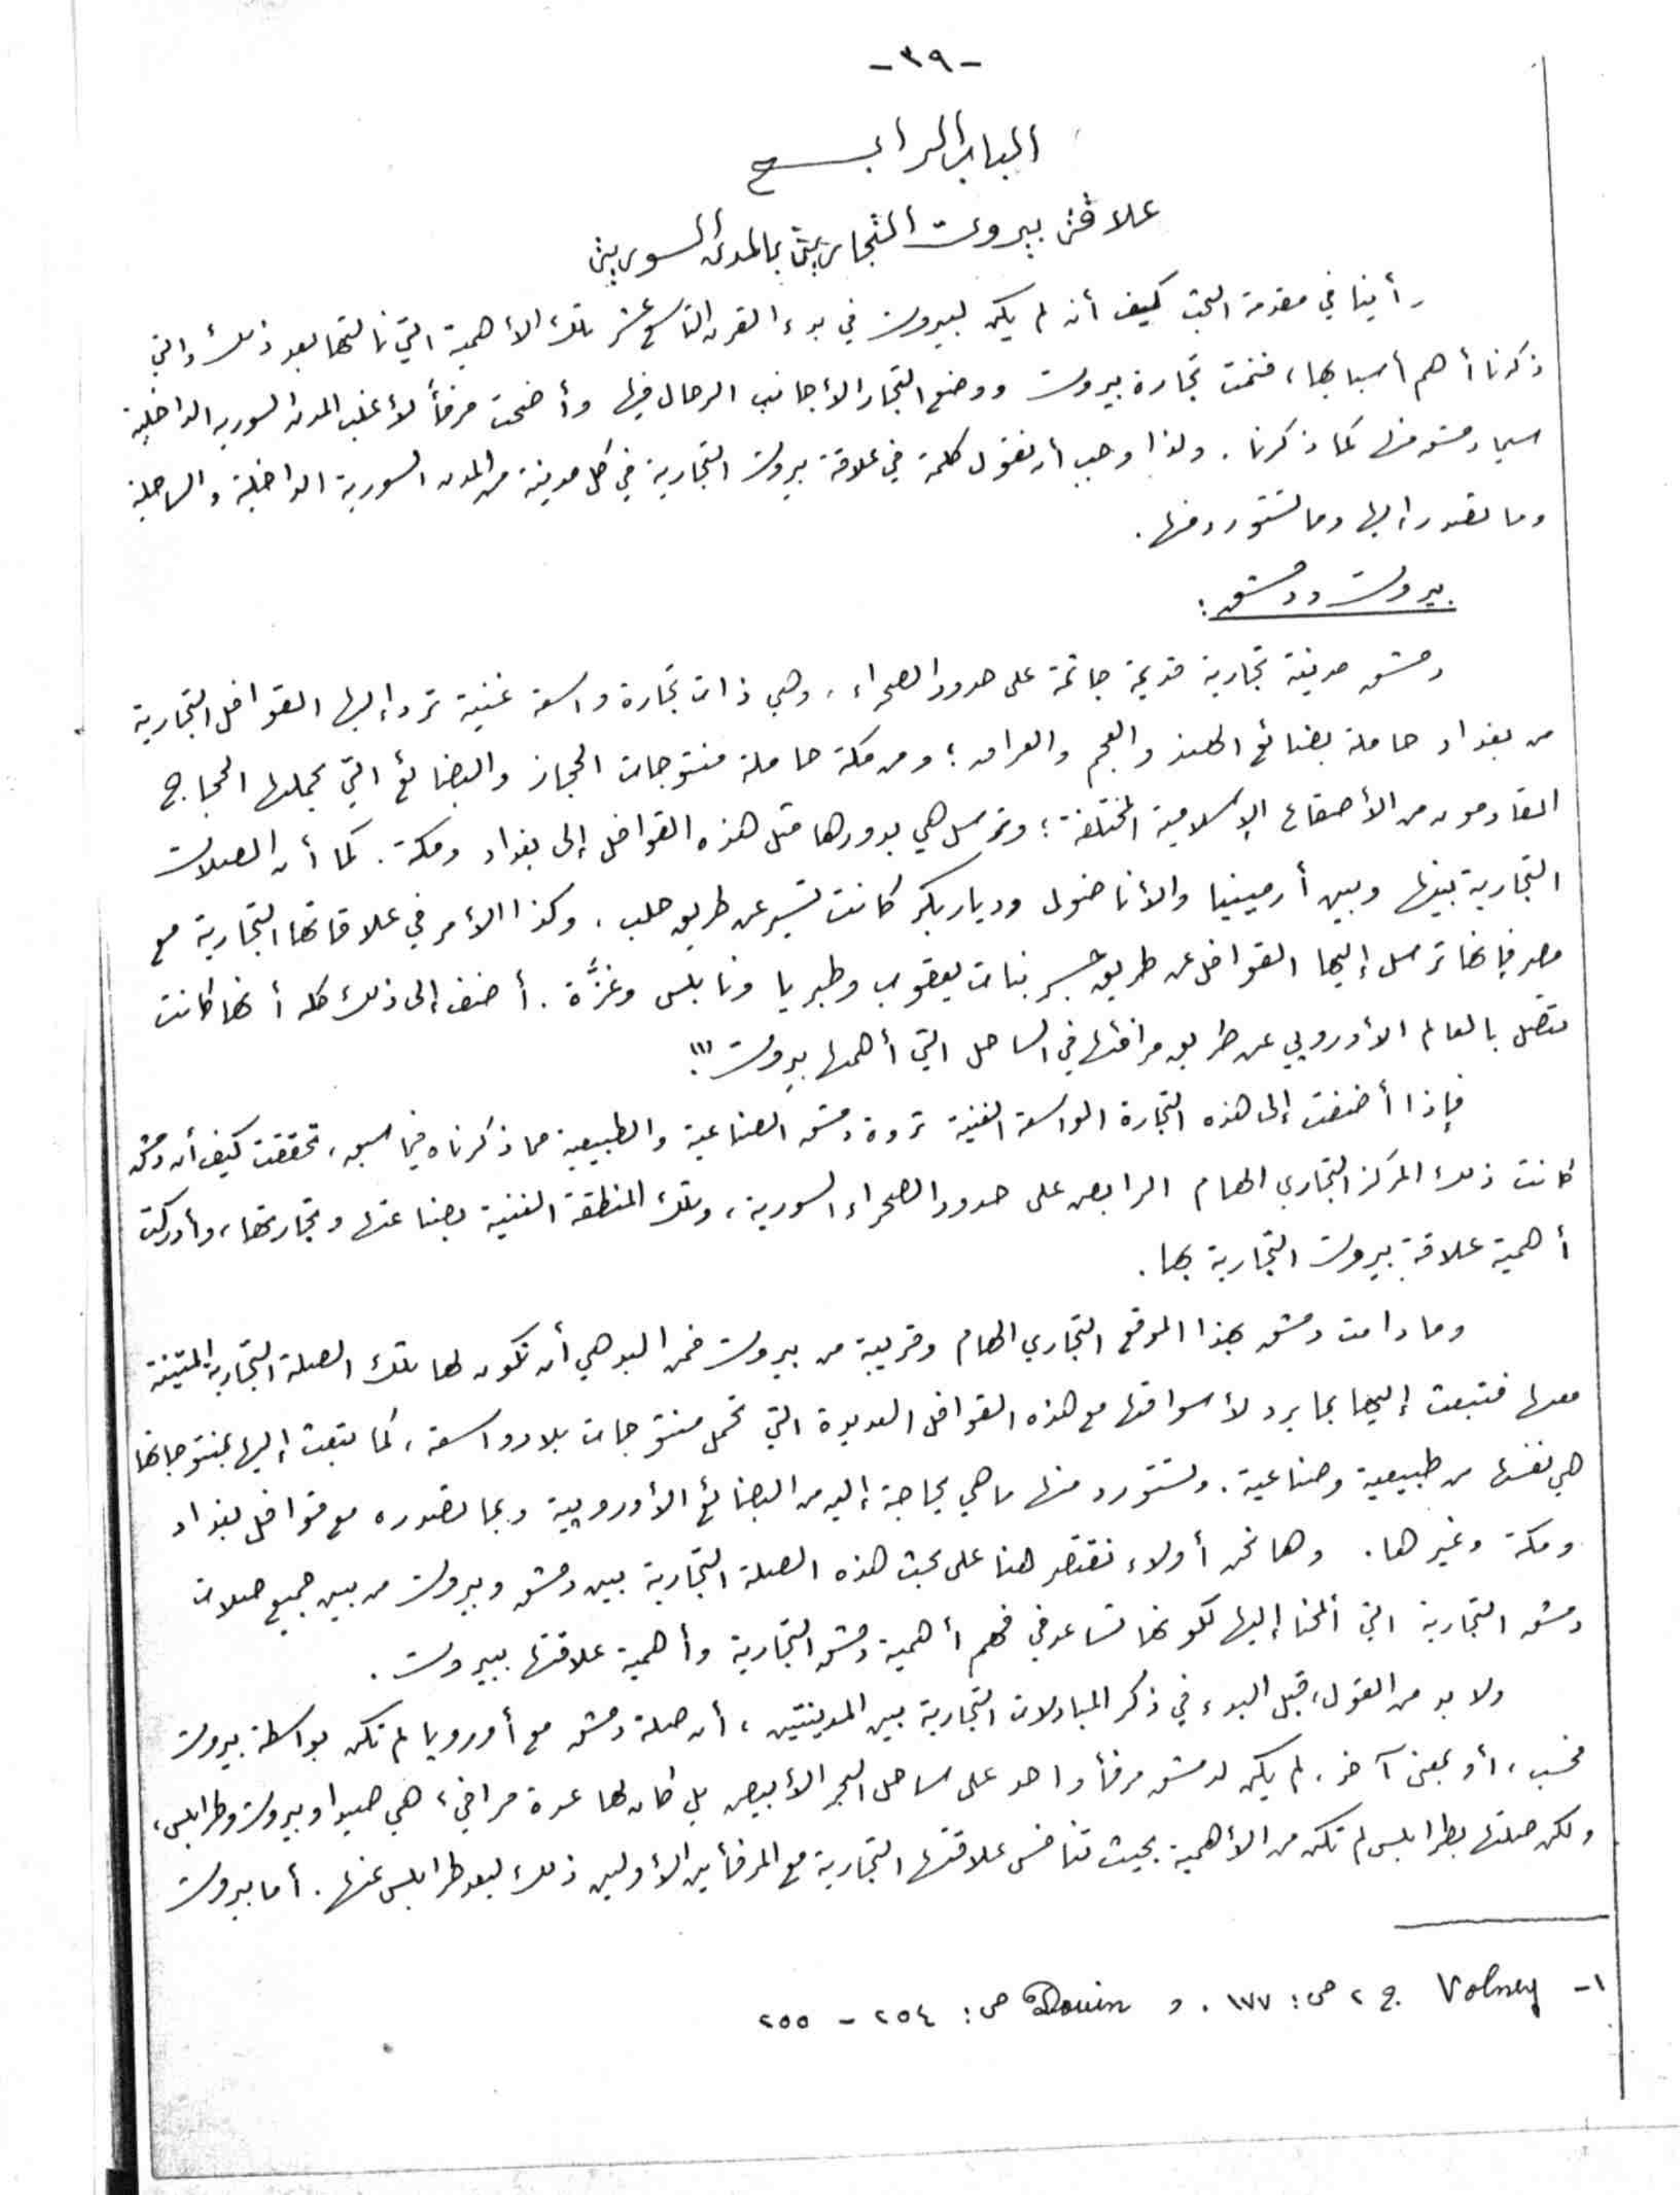 -٣٩-
الباب الرابع
علاقة بيروت التجارية بالمدن السورية
رأينا في مقدمة البحث كيف أنه لم يكن لبيروت في بدء القرن التاسع عشر تلك الأهمية التي نالتها بعد ذلك والتي
ذكرنا أهم أسبابها، فنمت تجارة بيروت ووضع التجار الأجانب الرحال فيها وأضحت مرفأً لأغلب المدن السورية الداخلية
سيما دمشق منها كما ذكرنا. ولذا وجب أن نقول كلمة في علاقة بيروت التجارية في كل مدينة من المدن السورية الداخلية والساحلية
وما تصدر إليها وما تستورد منها.
بيروت ودمشق:
دمشق مدينة تجارية قديمة جاثمة على حدود الصحراء، وهي ذات تجارة واسعة غنية ترد إليها القوافل التجارية
من بغداد حاملة بضائع الهند والعجم والعراق؛ ومن مكة حاملة منتوجات الحجاز والبضائع التي يحملها الحجاج
القادمون من الأصقاع الإسلامية المختلفة؛ وترسل هي بدورها مثل هذه القوافل إلى بغداد ومكة. كما أن الصلات
التجارية بينها وبين أرمينيا والأناضول وديار بكر كانت تسير عن طريق حلب. وكذا الأمر في علاقاتها التجارية مع
مصر فإنها ترسل إليها القوافل عن طريق جسر بنات يعقوب وطبريا ونابلس وغزَّة. أضف إلى ذلك كله أنها كانت
تتصل بالعالم الأوروبي عن طريق مرافئها في الساحل التي أهمها بيروت (١).
فإذا أضفت إلى هذه التجارة الواسعة الغنية ثروة دمشق الصناعية والطبيعية مما ذكرناه فيما سبق، تحققت كيف أن دمشق
كانت ذلك المركز التجاري الهام الرابض على حدود الصحراء السورية، وتلك المنطقة الغنية بصناعتها وتجارتها، وأدركت
أهمية علاقة بيروت التجارية بها.
وما دامت دمشق بهذا الموقع التجاري الهام وقريبة من بيروت فمن البدهي أن تكون لها تلك الصلة التجارية المتينة
معها فتبعث إليها بما يرد لأسواقها مع هذه القوافل العديدة التي تحمل منتوجات بلاد واسعة، كما تبعث إليها بمنتوجاتها
هي نفسها من طبيعية وصناعية. وتستورد منها ما هي بحاجة إليه من البضائع الأوروبية وبما تصدره مع قوافل بغداد
ومكة وغيرها. وها نحن أولاء نقتصر هنا على بحث هذه الصلة التجارية بين دمشق وبيروت من بين جميع صلات
دمشق التجارية التي ألمحنا إليها لكونها تساعد في فهم أهمية دمشق التجارية وأهمية علاقتها ببيروت.
ولا بد من القول، قبل البدء في ذكر المبادلات التجارية بين المدينتين، أن صلة دمشق مع أوروبا لم تكن بواسطة بيروت
فحسب، أو بمعنى آخر، لم يكن لدمشق مرفأ واحد على ساحل البحر الأبيض بل كان لها عدة مرافئ، هي صيدا وبيروت وطرابلس،
ولكن صلتها بطرابلس لم تكن من الأهمية بحيث تنافس علاقتها التجارية مع المرفأين الأولين ذلك لبعد طرابلس عنها. أما بيروت
١- Volney ج ٢ ص: ١٧٧. و Douin ص: ٢٥٤ - ٢٥٥